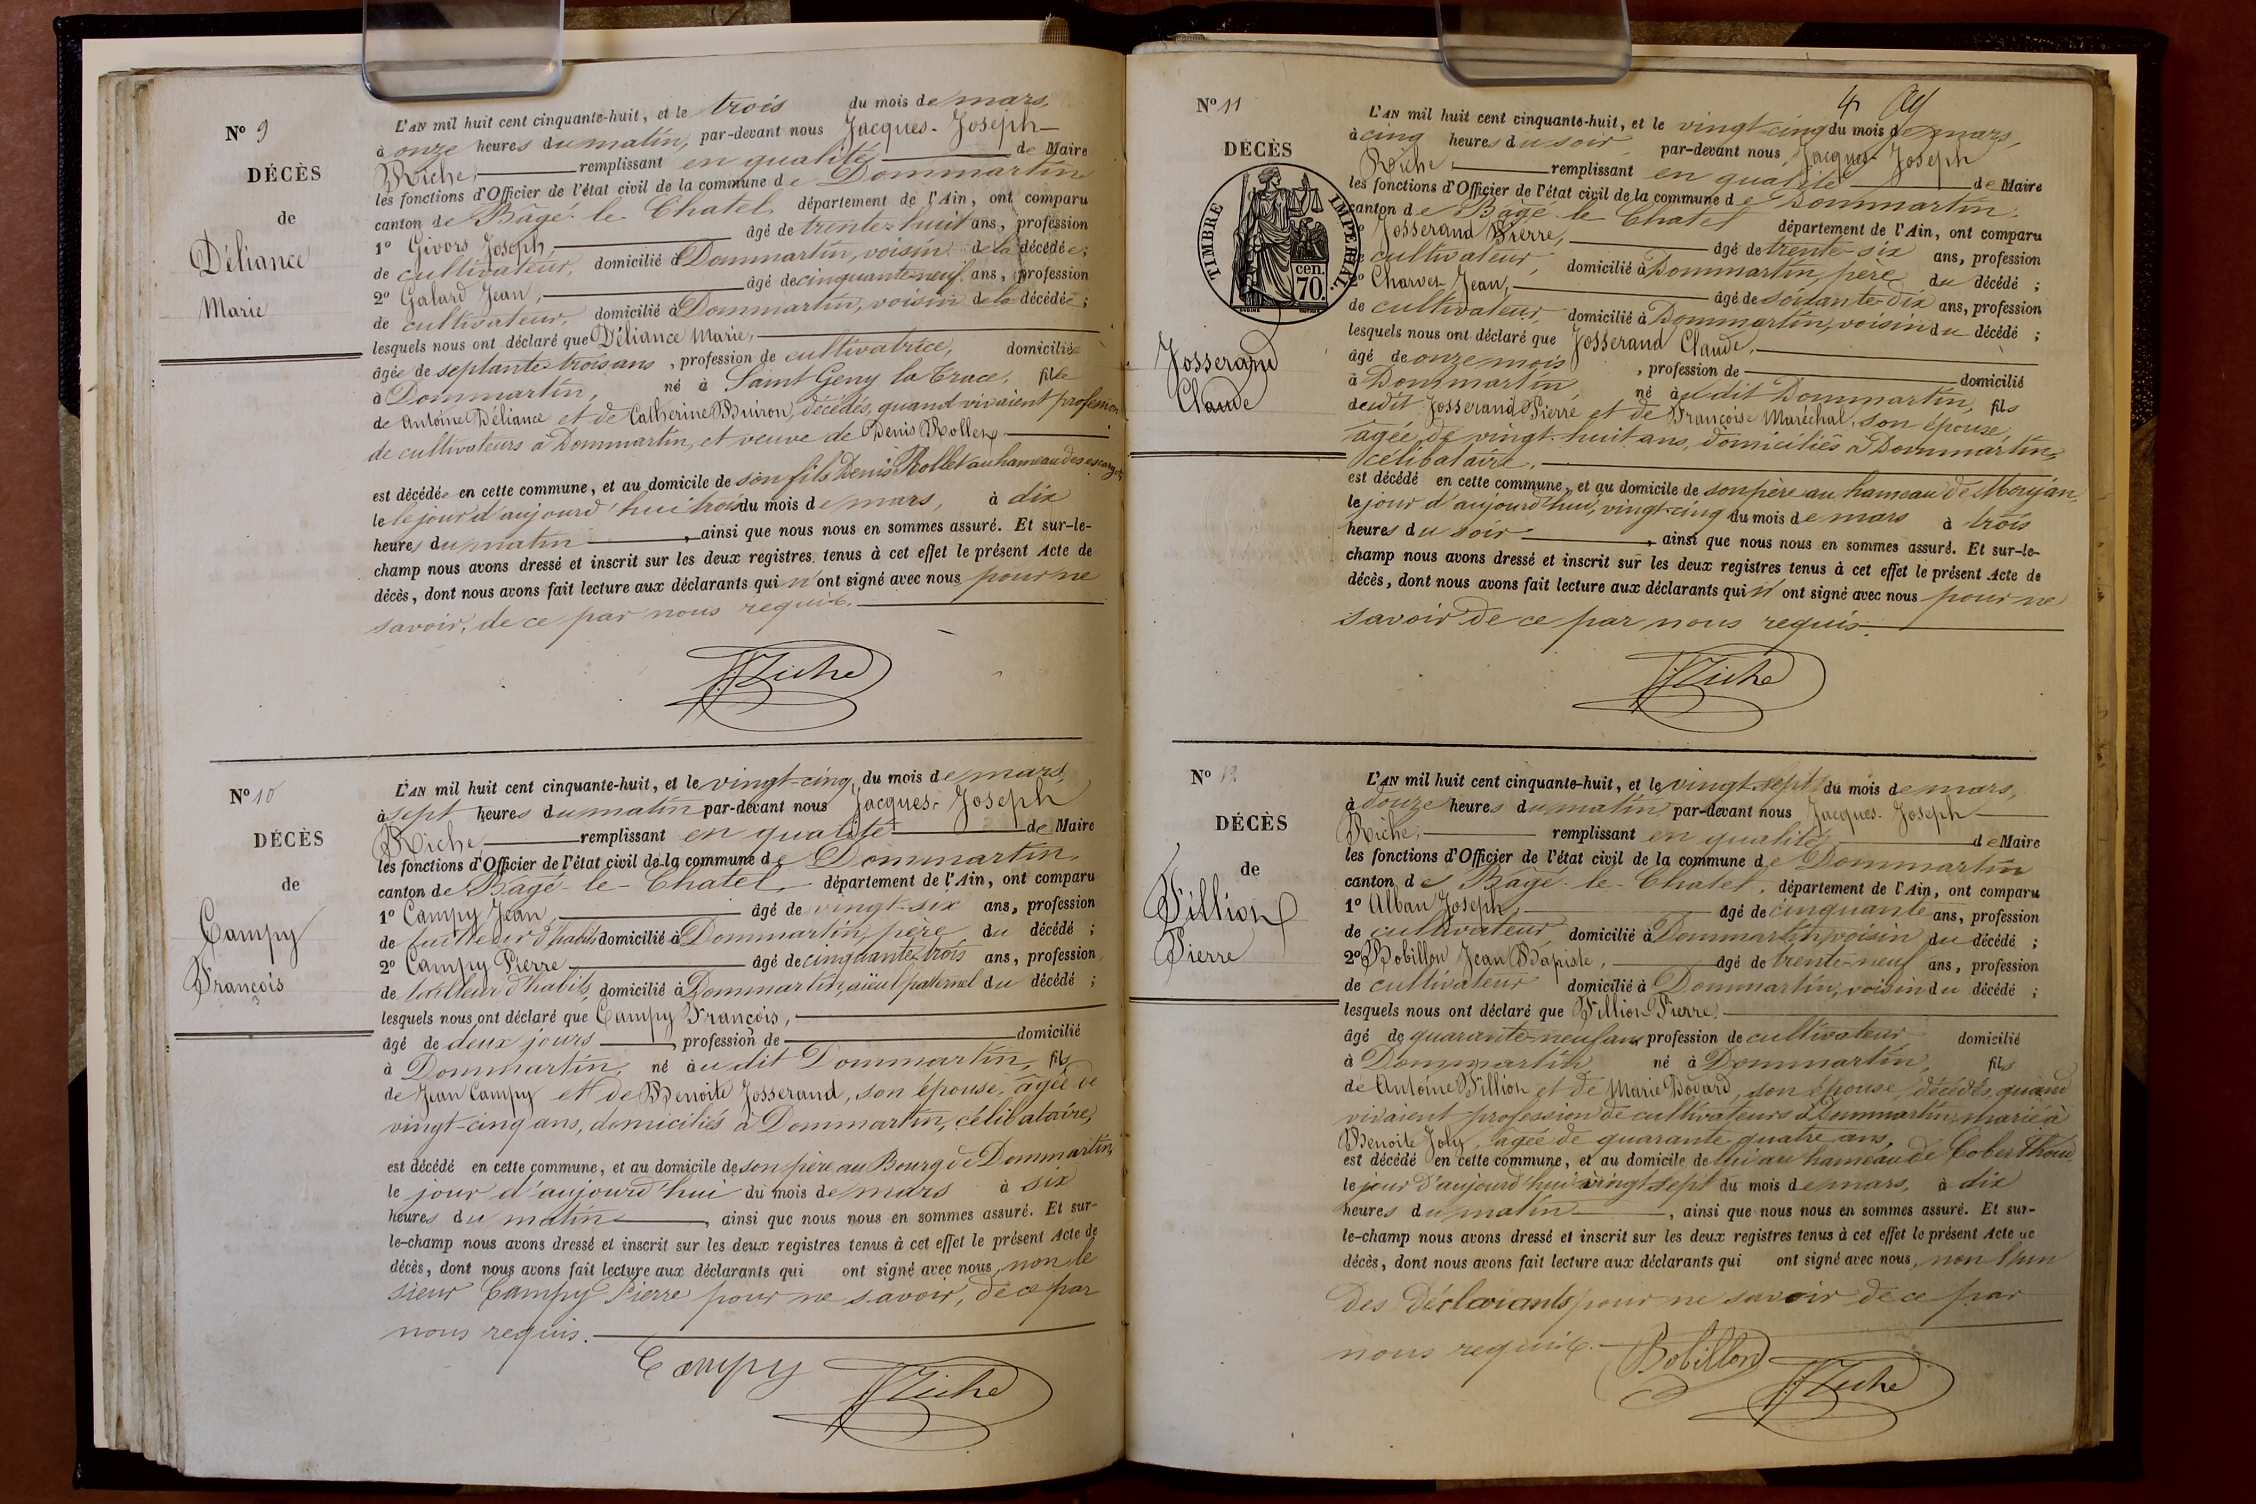 N° 9
DÉCÈS
de
Déliance
Marie
L'AN mil huit cent cinquante-huit, et le trois du mois de mars,
à onze heures du matin, par-devant nous Jacques-Joseph
Riche, remplissant en qualité de Maire
les fonctions d'Officier de l'état civil de la commune de Dommartin
canton de Bâgé-le-Chatel, département de l'Ain, ont comparu
1° Givors Joseph, âgé de trente-huit ans, profession
de cultivateur, domicilié à Dommartin, voisin de la décédée;
2° Galard Jean, âgé de cinquante-neuf ans, profession
de cultivateur, domicilié à Dommartin, voisin de la décédée;
lesquels nous ont déclaré que Déliance Marie,
âgée de septante-trois ans, profession de cultivatrice, domiciliée
à Dommartin, né à Saint Geny la Trace, fille
de Antoine Déliance et de Catherine Buiron, décédés, quand vivaient profession
de cultivateurs à Dommartin, et veuve de Denis Rollet
est décédée en cette commune, et au domicile de son fils Denis Rollet au hameau des
le le jour d'aujourd'hui trois du mois de mars, à dix
heures du matin, ainsi que nous nous en sommes assuré. Et sur-le-
champ nous avons dressé et inscrit sur les deux registres tenus à cet effet le présent Acte de
décès, dont nous avons fait lecture aux déclarants qui n'ont signé avec nous pour ne
savoir, de ce par nous requis.
Riche
N° 10
DÉCÈS
de
Campy
François
L'AN mil huit cent cinquante-huit, et le vingt-cinq du mois de mars,
à sept heures du matin par-devant nous Jacques-Joseph
Riche, remplissant en qualité de Maire
les fonctions d'Officier de l'état civil de la commune de Dommartin,
canton de Bâgé-le-Chatel, département de l'Ain, ont comparu
1° Campy Jean, âgé de vingt-six ans, profession
de tailleur d'habits domicilié à Dommartin, père du décédé;
2° Campy Pierre âgé de cinquante-trois ans, profession
de tailleur d'habits, domicilié à Dommartin, aïeul paternel du décédé;
lesquels nous ont déclaré que Campy François,
âgé de deux jours, profession de domicilié
à Dommartin, né à udit Dommartin, fils
de Jean Campy et de Benoite Josserand, son épouse, âgée de
vingt-cinq ans, domiciliés à Dommartin, célibataire,
est décédé en cette commune, et au domicile de son père au Bourg de Dommartin,
le jour d'aujourd'hui du mois de mars à six
heures du matin, ainsi que nous nous en sommes assuré. Et sur-
le-champ nous avons dressé et inscrit sur les deux registres tenus à cet effet le présent Acte de
décès, dont nous avons fait lecture aux déclarants qui ont signé avec nous, non le
sieur Campy Pierre pour ne savoir, de ce par
nous requis.
Campy Riche
4
N° 11
DÉCÈS
TIMBRE IMPÉRIAL.
cen. 70.
Josserand
Claude
L'AN mil huit cent cinquante-huit, et le vingt-cinq du mois de mars,
à cinq heures du soir par-devant nous Jacques-Joseph
Riche, remplissant en qualité de Maire
les fonctions d'Officier de l'état civil de la commune de Dommartin
canton de Bâgé-le-Chatel département de l'Ain, ont comparu
Josserand Pierre, âgé de trente-six ans, profession
cultivateur, domicilié à Dommartin, père du décédé;
Charvet Jean, âgé de soixante-dix ans, profession
de cultivateur, domicilié à Dommartin, voisin du décédé;
lesquels nous ont déclaré que Josserand Claude,
âgé de onze mois, profession de domicilié
à Dommartin, né à udit Dommartin, fils
dudit Josserand Pierre et de Françoise Maréchal, son épouse,
âgée de vingt-huit ans, domiciliés à Dommartin,
célibataire,
est décédé en cette commune, et au domicile de son père au hameau de Monjan,
le jour d'aujourd'hui, vingt-cinq du mois de mars à trois
heures du soir, ainsi que nous nous en sommes assuré. Et sur-le-
champ nous avons dressé et inscrit sur les deux registres tenus à cet effet le présent Acte de
décès, dont nous avons fait lecture aux déclarants qui n'ont signé avec nous pour ne
savoir de ce par nous requis.
Riche
N° 12
DÉCÈS
de
Pillion
Pierre
L'AN mil huit cent cinquante-huit, et le vingt-sept du mois de mars,
à douze heures du matin, par-devant nous Jacques-Joseph
Riche, remplissant en qualité de Maire
les fonctions d'Officier de l'état civil de la commune de Dommartin
canton de Bâgé-le-Chatel, département de l'Ain, ont comparu
1° Alban Joseph, âgé de cinquante ans, profession
de cultivateur domicilié à Dommartin, voisin du décédé;
2° Bobillon Jean Bapiste, âgé de trente-neuf ans, profession
de cultivateur domicilié à Dommartin, voisin du décédé;
lesquels nous ont déclaré que Pillion Pierre,
âgé de quarante-neuf ans profession de cultivateur domicilié
à Dommartin né à Dommartin, fils
de Antoine Pillion et de Marie Bodard, son épouse, décédés, quand
vivaient profession de cultivateurs à Dommartin, marié à
Benoite Joly, âgée de quarante-quatre ans,
est décédé en cette commune, et au domicile de lui au hameau de
le jour d'aujourd'hui vingt-sept du mois de mars, à dix
heures du matin, ainsi que nous nous en sommes assuré. Et sur-
le-champ nous avons dressé et inscrit sur les deux registres tenus à cet effet le présent Acte de
décès, dont nous avons fait lecture aux déclarants qui ont signé avec nous, non l'un
des déclarants pour ne savoir de ce par
nous requis.
Bobillon Riche